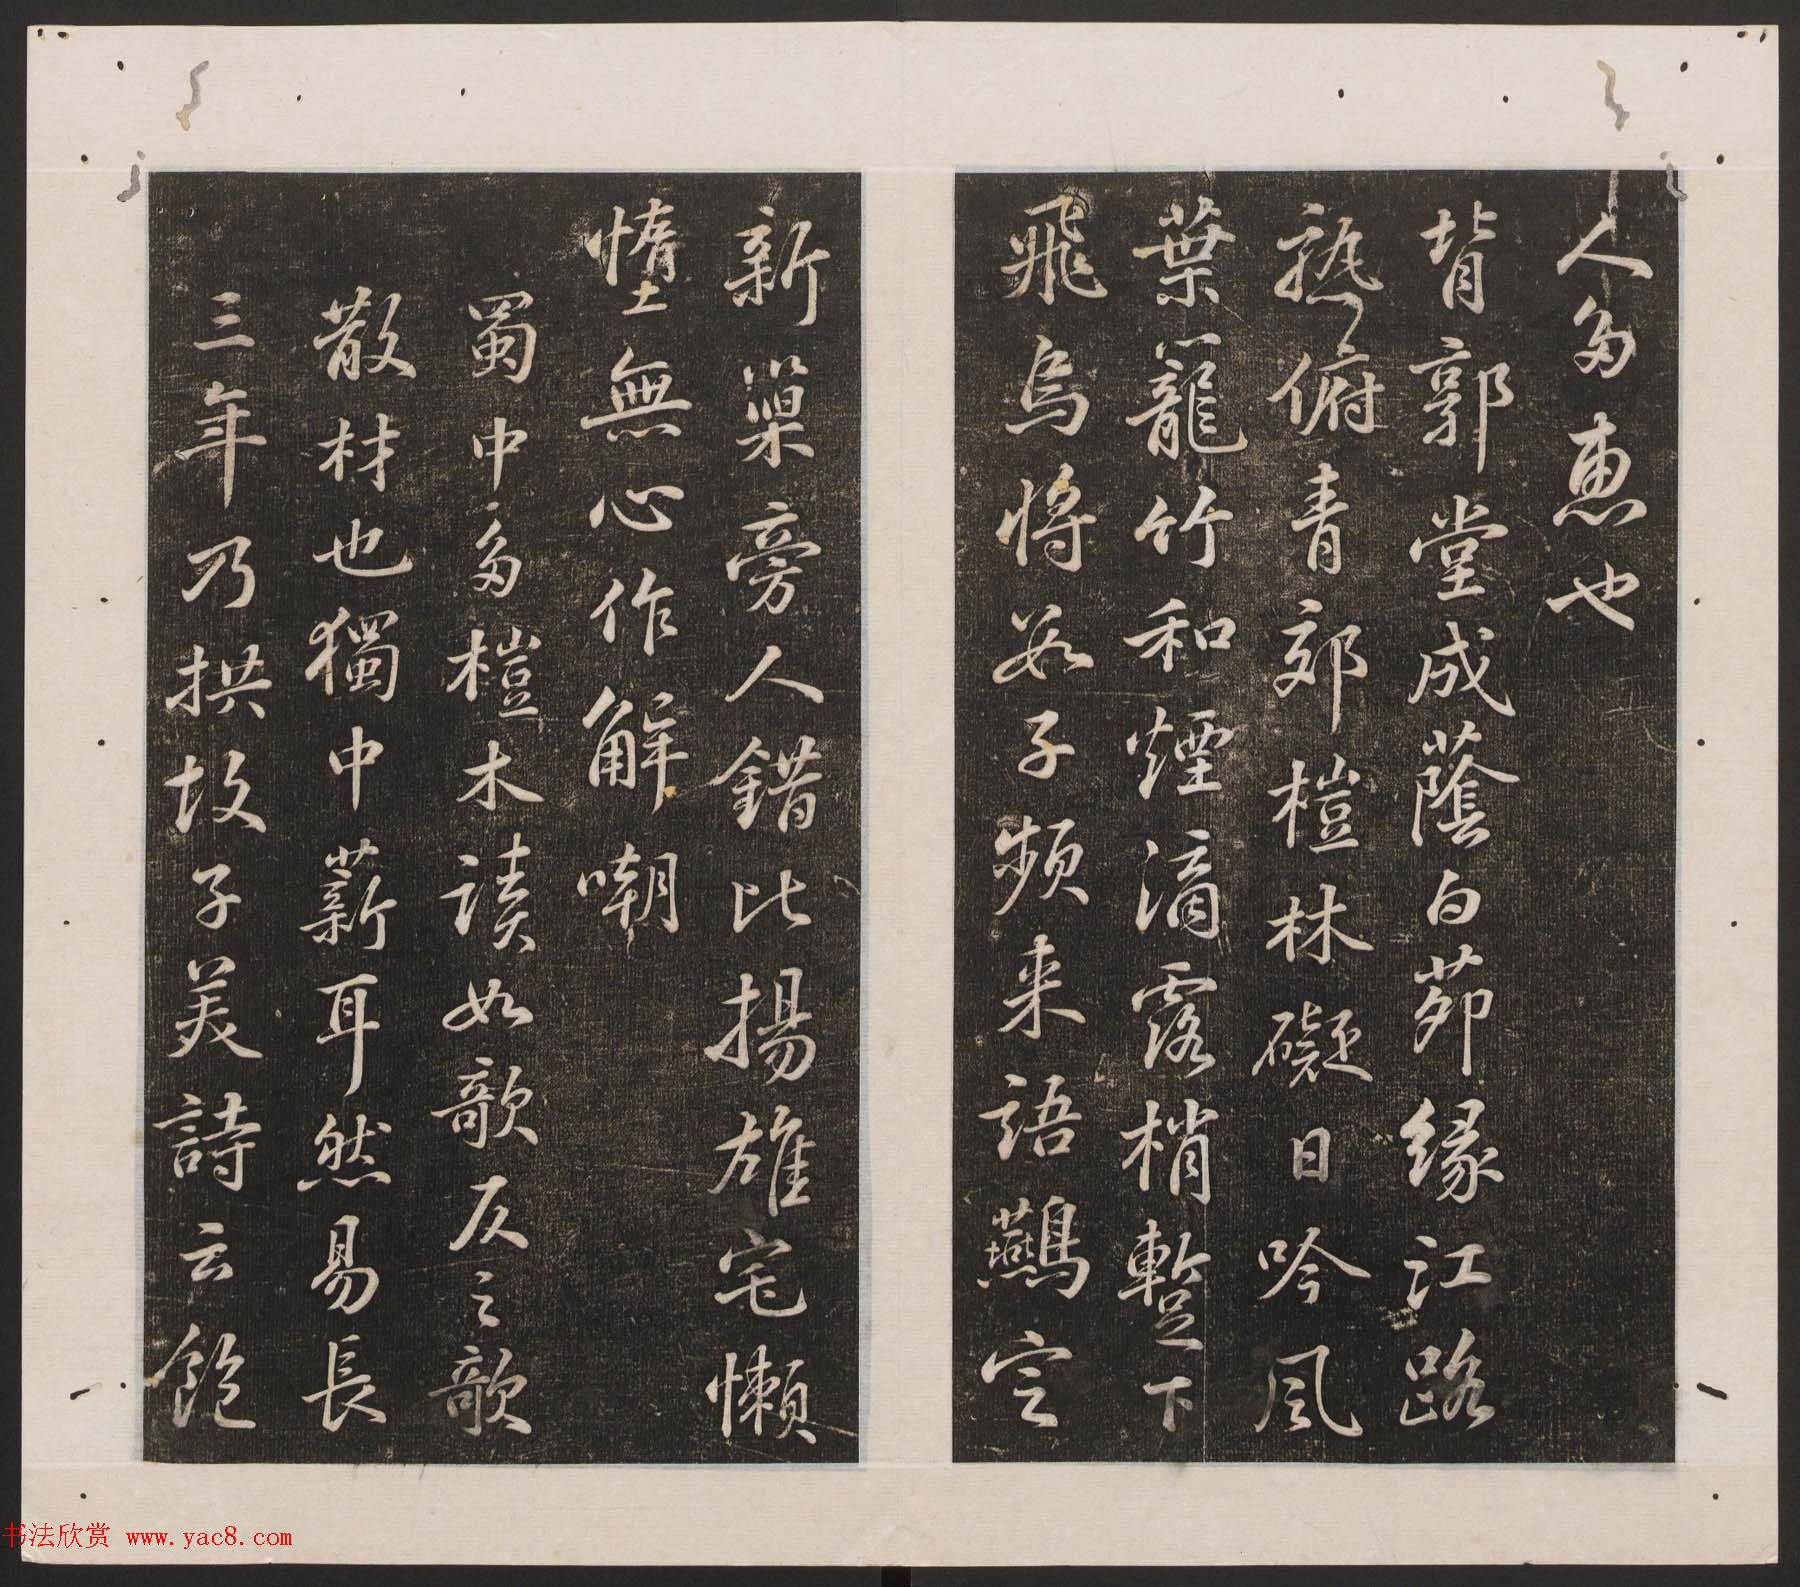 人多惠也
背郭堂成蔭白茆緣江路
熟俯青郊榿林礙日吟風
葉籠竹和煙滴露梢蹔下
飛烏將數子頻来語鷰定
新巢旁人錯比揚雄宅懶
惰無心作解嘲
蜀中多榿木讀如欹仄之欹
散材也獨中薪耳然易長
三年乃拱故子美詩云飽
书法欣赏 www.yac8.com